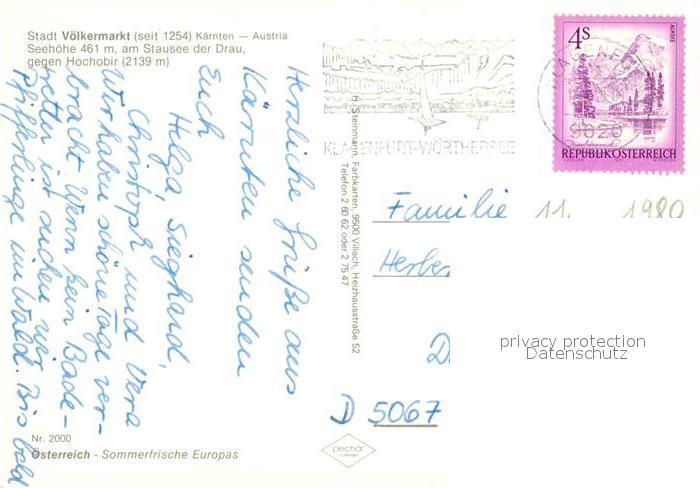 Stadt Völkermarkt (seit 1254) Kärnten — Austria
Seehöhe 461 m, am Stausee der Drau,
gegen Hochobir (2139 m)
Herzliche Grüße aus
Kärnten senden
Euch
Helga, Sieghard,
Christoph und Vera
Wir haben schöne Tage ver-
bracht. Wenn kein Bade-
wetter ist suchen wir
Pfifferlinge im Wald. Bis bald
Nr. 2000
Österreich - Sommerfrische Europas
H. Steinmann, Farbkarten, 9500 Villach, Heizhausstraße 52
Telefon 2 80 62 oder 2 75 47
KLAGENFURT-WÖRTHERSEE
4S
ALMSEE
9020
REPUBLIK ÖSTERREICH
Familie 11. 1980
Herber
D
privacy protection
Datenschutz
D 5067
pechar